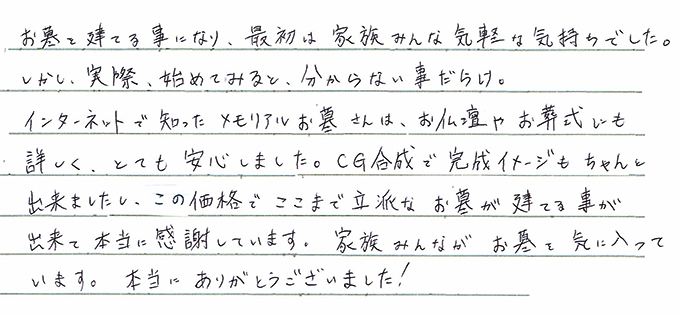 お墓を建てる事になり、最初は家族みんな気軽な気持ちでした。
しかし、実際、始めてみると、分からない事だらけ。
インターネットで知ったメモリアルお墓さんは、お仏壇やお葬式にも
詳しく、とても安心しました。CG合成で完成イメージもちゃんと
出来ましたし、この価格でここまで立派なお墓が建てる事が
出来て本当に感謝しています。家族みんながお墓を気に入って
います。本当にありがとうございました!